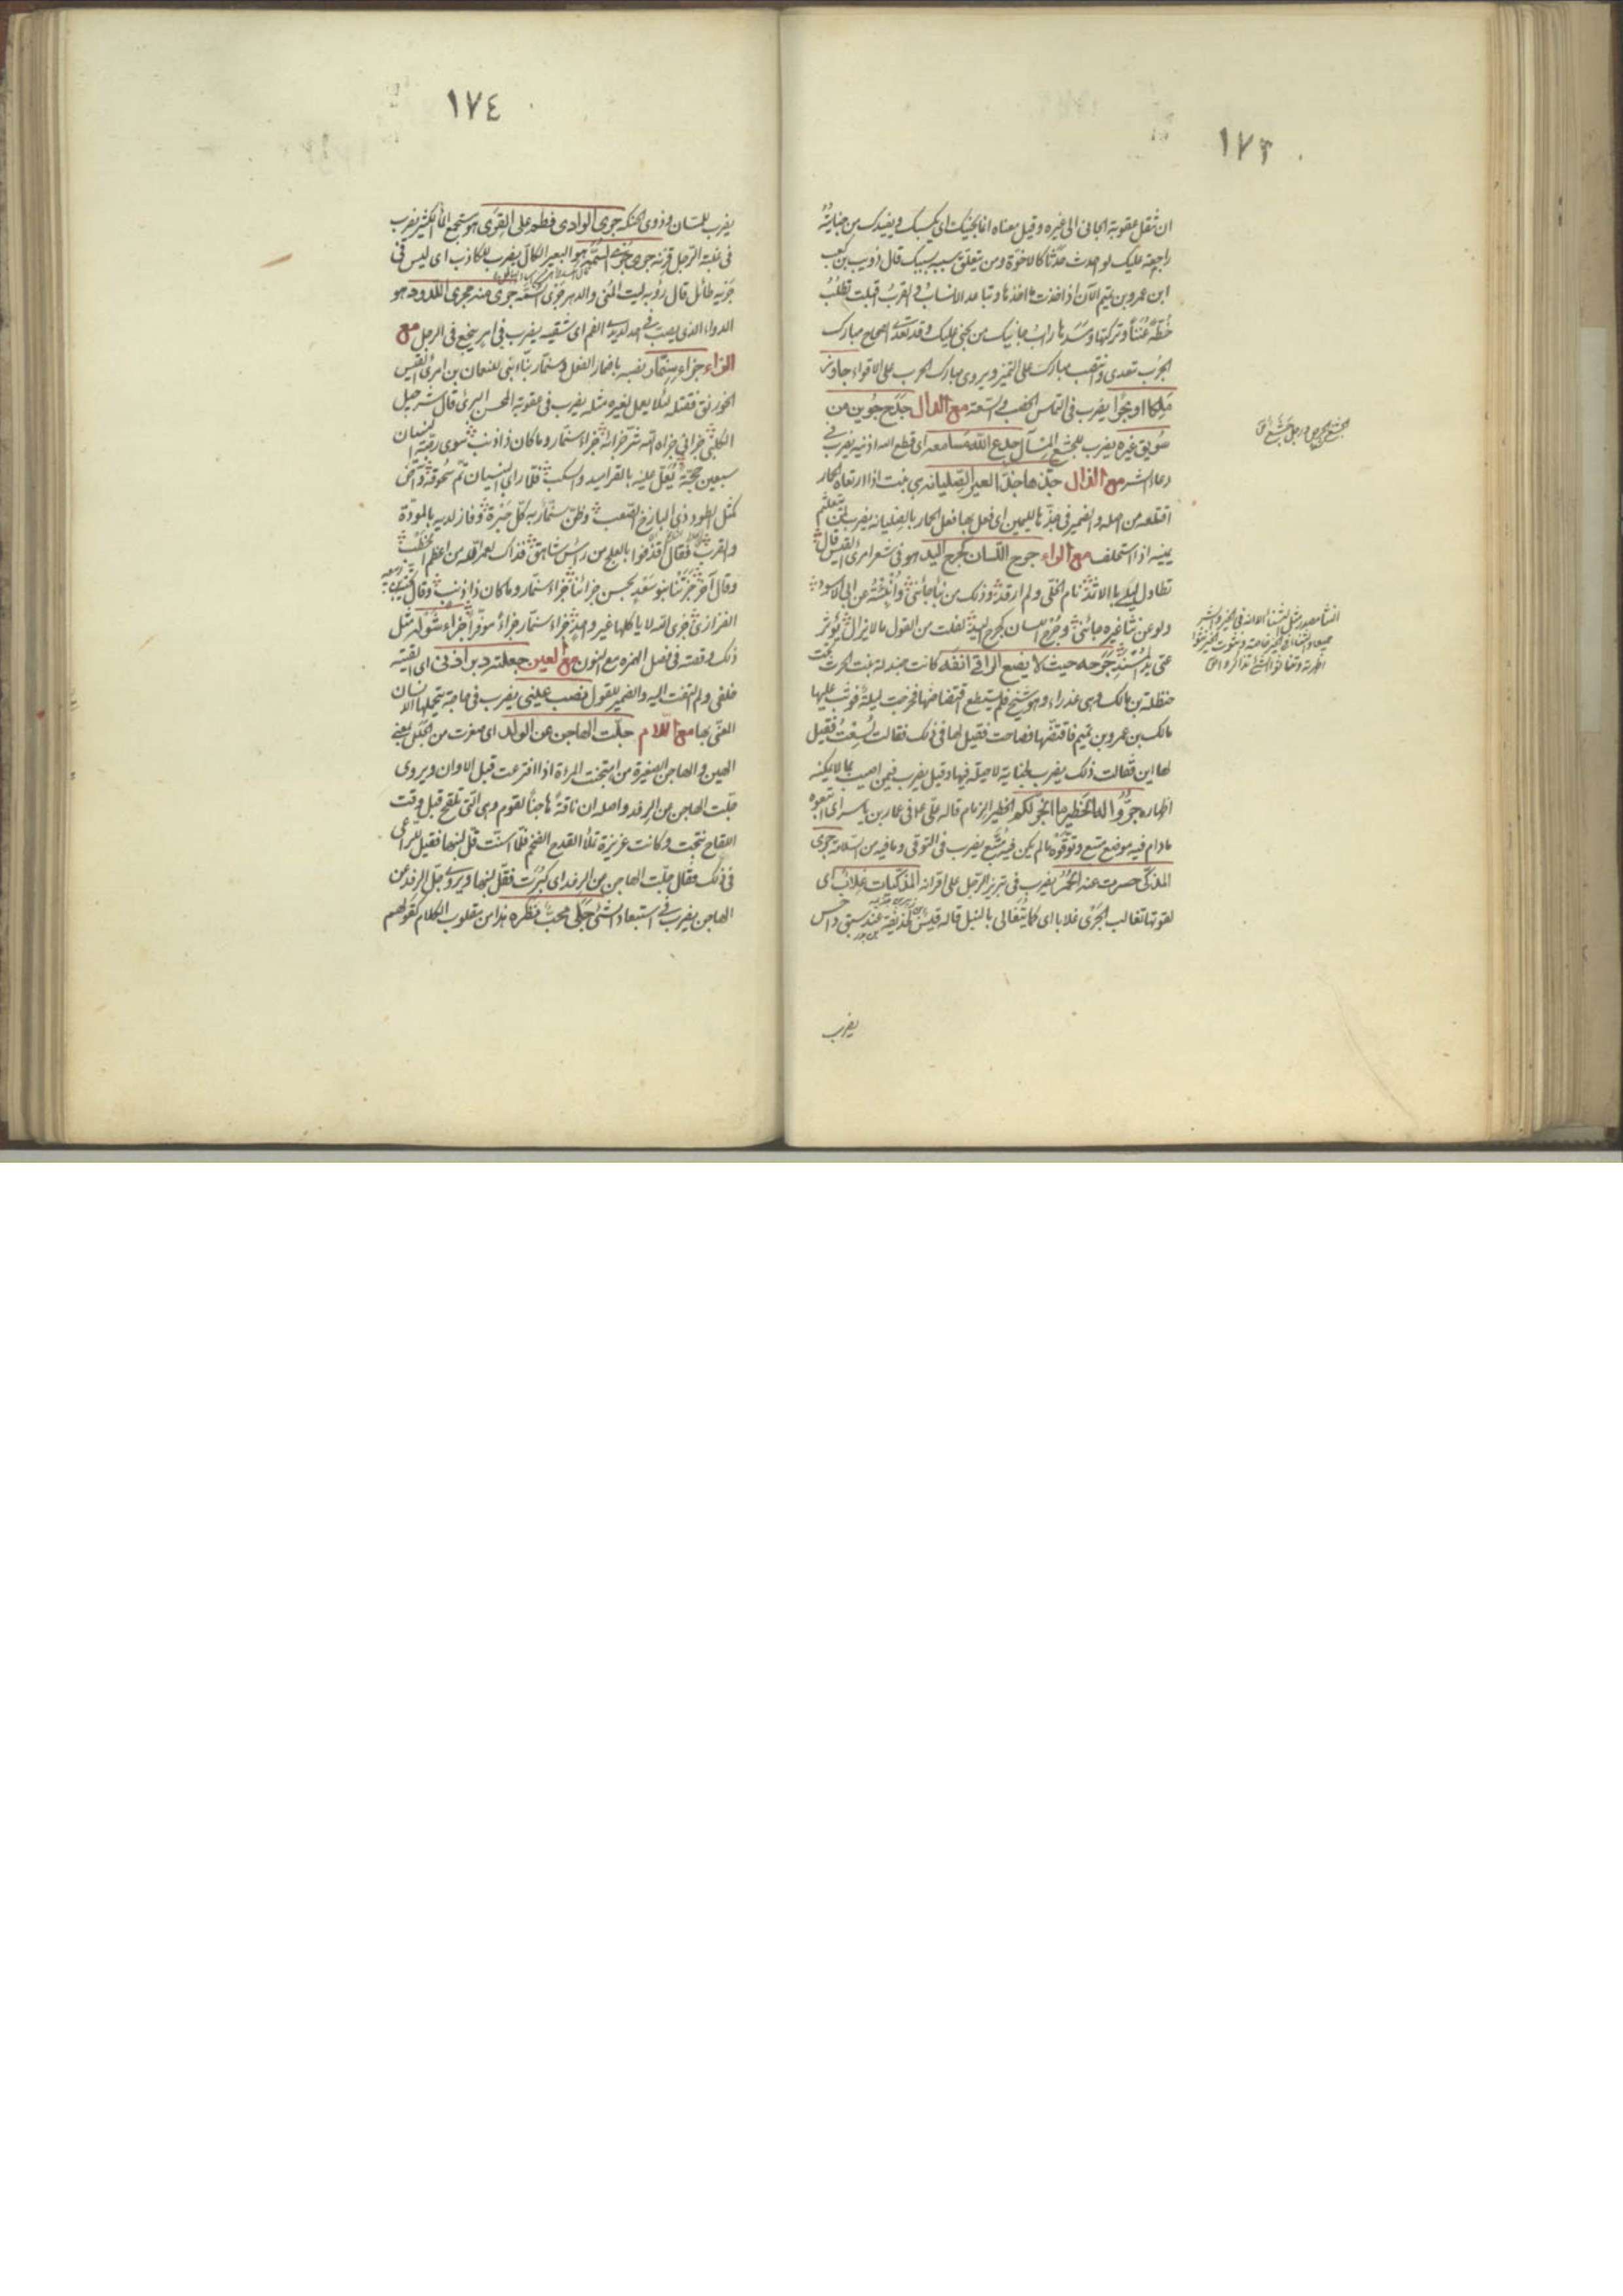 ١٧٣
ان تنقل عقوبة الجانى الى غيره وقيل معناه انما يجنيك اى يكسبك ويفيدك من جنايته
راجعة عليك لو احدث حدثا كالاخوة ومن يتعلق بسببه بسببك قال ذويب بن كعب
ابن عمرو بن تميم الآن اذ اخذت مآخذها وتباعد الانساب والقرب اقبلت تطلب
خطة غبنا وتركتها ومسدها راب جانيك من يجنى عليك وقد تعدى الصحاح مبارك
الجرب تعدى وانتصب مبارك على التميز ويروى مبارك الجرب على الاقواء جاور
ملكا او بحرا يضرب فى التماس الخصب والسعة مع الدال جدح جوين من
سويق غيره يضرب للجشع المتسآل جدع الله مسامعه اى قطع الله اذنيه يضرب فى
دعاء الشر مع الذال جذها جذ العير الصليانة هى نبت اذا ارتعاه الحمار
اقتلعه من اصله والضمير فى جذها لليمين اى فعل بها فعل الحمار بالصليانة يضرب لمن
يمينه اذا استحلف مع الراء جرح اللسان كجرح اليد هو فى شعر امرئ القيس قال
تطاول ليلك بالاثمد نام الخلى ولم ارقد وذلك من نبأ جائنى وانبئته عن ابى الاسود
ولو عن نثا غيره جائنى وجرح اللسان كجرح اليد لقلت من القول ما لا يزال يؤثر
عنى يد المسند جرحه حيث لا يضع الراقى انفه كانت جندلة بنت الحرث تحت
حنظلة بن مالك وهى عذراء وهو شيخ فلم يستطع اقتضاضها فخرجت ليلة فوثب عليها
مالك بن عمرو بن تميم فاقتضها فصاحت فقيل لها فى ذلك فقالت لسعت فقيل
لها اين فقالت ذلك يضرب لجناية لا حيلة فيها وقيل يضرب فيمن اصيب بما لا يمكنه
اظهاره جروا له الخطير ما انجر لكم الخطير الزمام قاله على فى عمار بن ياسر اى اتبعوه
مادام فيه موضع متبع وتوقوه ما لم يكن فيه متبع يضرب فى التوقى وما فيه من السلامة جرى
المذكى حسرت عنه الحمر يضرب فى تبريز الرجل على اقرانه المذكيات غلاب اى
لقوتها تغالب الجرى غلابا اى كما يتغالى بالنبل قاله قيس لحذيفة عند سبق داحس
يضرب
النثا مصدر مثل الثنا الا انه فى الخير والشر
جميعا والثناء فى الخير خاصة
١٧٤
يضرب للمسان وذوى الحنكة جرى الوادى فطم على القرى هو مستجمع الماء الكثير يضرب
فى غلبة الرجل قرنه جرى جرى السمه هو البعير الكال يضرب للكاذب اى ليس فى
جريه طائل قال رؤبه ليت المنى والدهر جرى السمه جرى منه مجرى اللدود هو
الدواء الذى يصب فى احد لديدى الفم اى شقيه يضرب فى امر ينجع فى الرجل مع
الزاء جزاء سنمار نصبه باضمار الفعل وسنمار بناء بنى للنعمان بن امرئ القيس
الخورنق فقتله لئلا يعمل لغيره مثله يضرب فى عقوبة المحسن البرئ قال شرحبيل
الكلبى جزانى جزاه الله شر جزائه جزاء سنمار وما كان ذا ذنب سوى رصه البنيان
سبعين حجة يعلى عليه بالقراميد والسكب فلما راى البنيان تم سحوقه وآض
كمثل الطود ذى الباذخ الصعب وظن سنمار به كل حبرة وفاز لديه بالمودة
والقرب فقال اقذفوا بالعلج من راس شاهق فذاك لعمر الله من اعظم الخطب
وقال آخر جزتنا بنو سعد بحسن جزائنا جزاء سنمار وما كان ذا ذنب وقال
الفزارى جزى الله لايا كلها غير واحد جزاء سنمار جزاء موفرا جزاء شولة مثل
ذلك وقصته فى فصل الهمزة مع النون مع العين جعلته دبر اذنى اى القيته
خلفى ولم التفت اليه والضمير للقول نصب عينى يضرب فى حاجة يتحملها الانسان
المعنى بها مع اللام جلت الهاجن عن الولد اى صغرت من الجلل بمعنى
الهين والهاجن الصغيرة من اهتجنت المرأة اذا افترعت قبل الاوان ويروى
جلت الهاجن عن الرفد واصله ان ناقة هاجنا لقوم وهى التى تلقح قبل وقت
اللقاح نتجت وكانت غزيرة تملأ القدح الضخم فلما اسنت قل لبنها فقيل للراعى
فى ذلك فقال جلت الهاجن عن الرفد اى كبرت فقل لبنها ويروى جل الرفد عن
الهاجن يضرب فى استبعاد الشئ جلى محب نظره هذا من مقلوب الكلام كقولهم